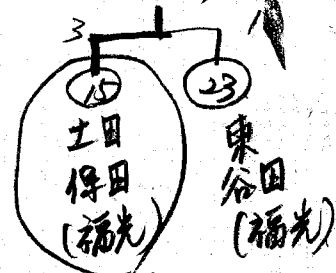 3
15
23
土田
保田
(福光)
東
谷田
(福光)